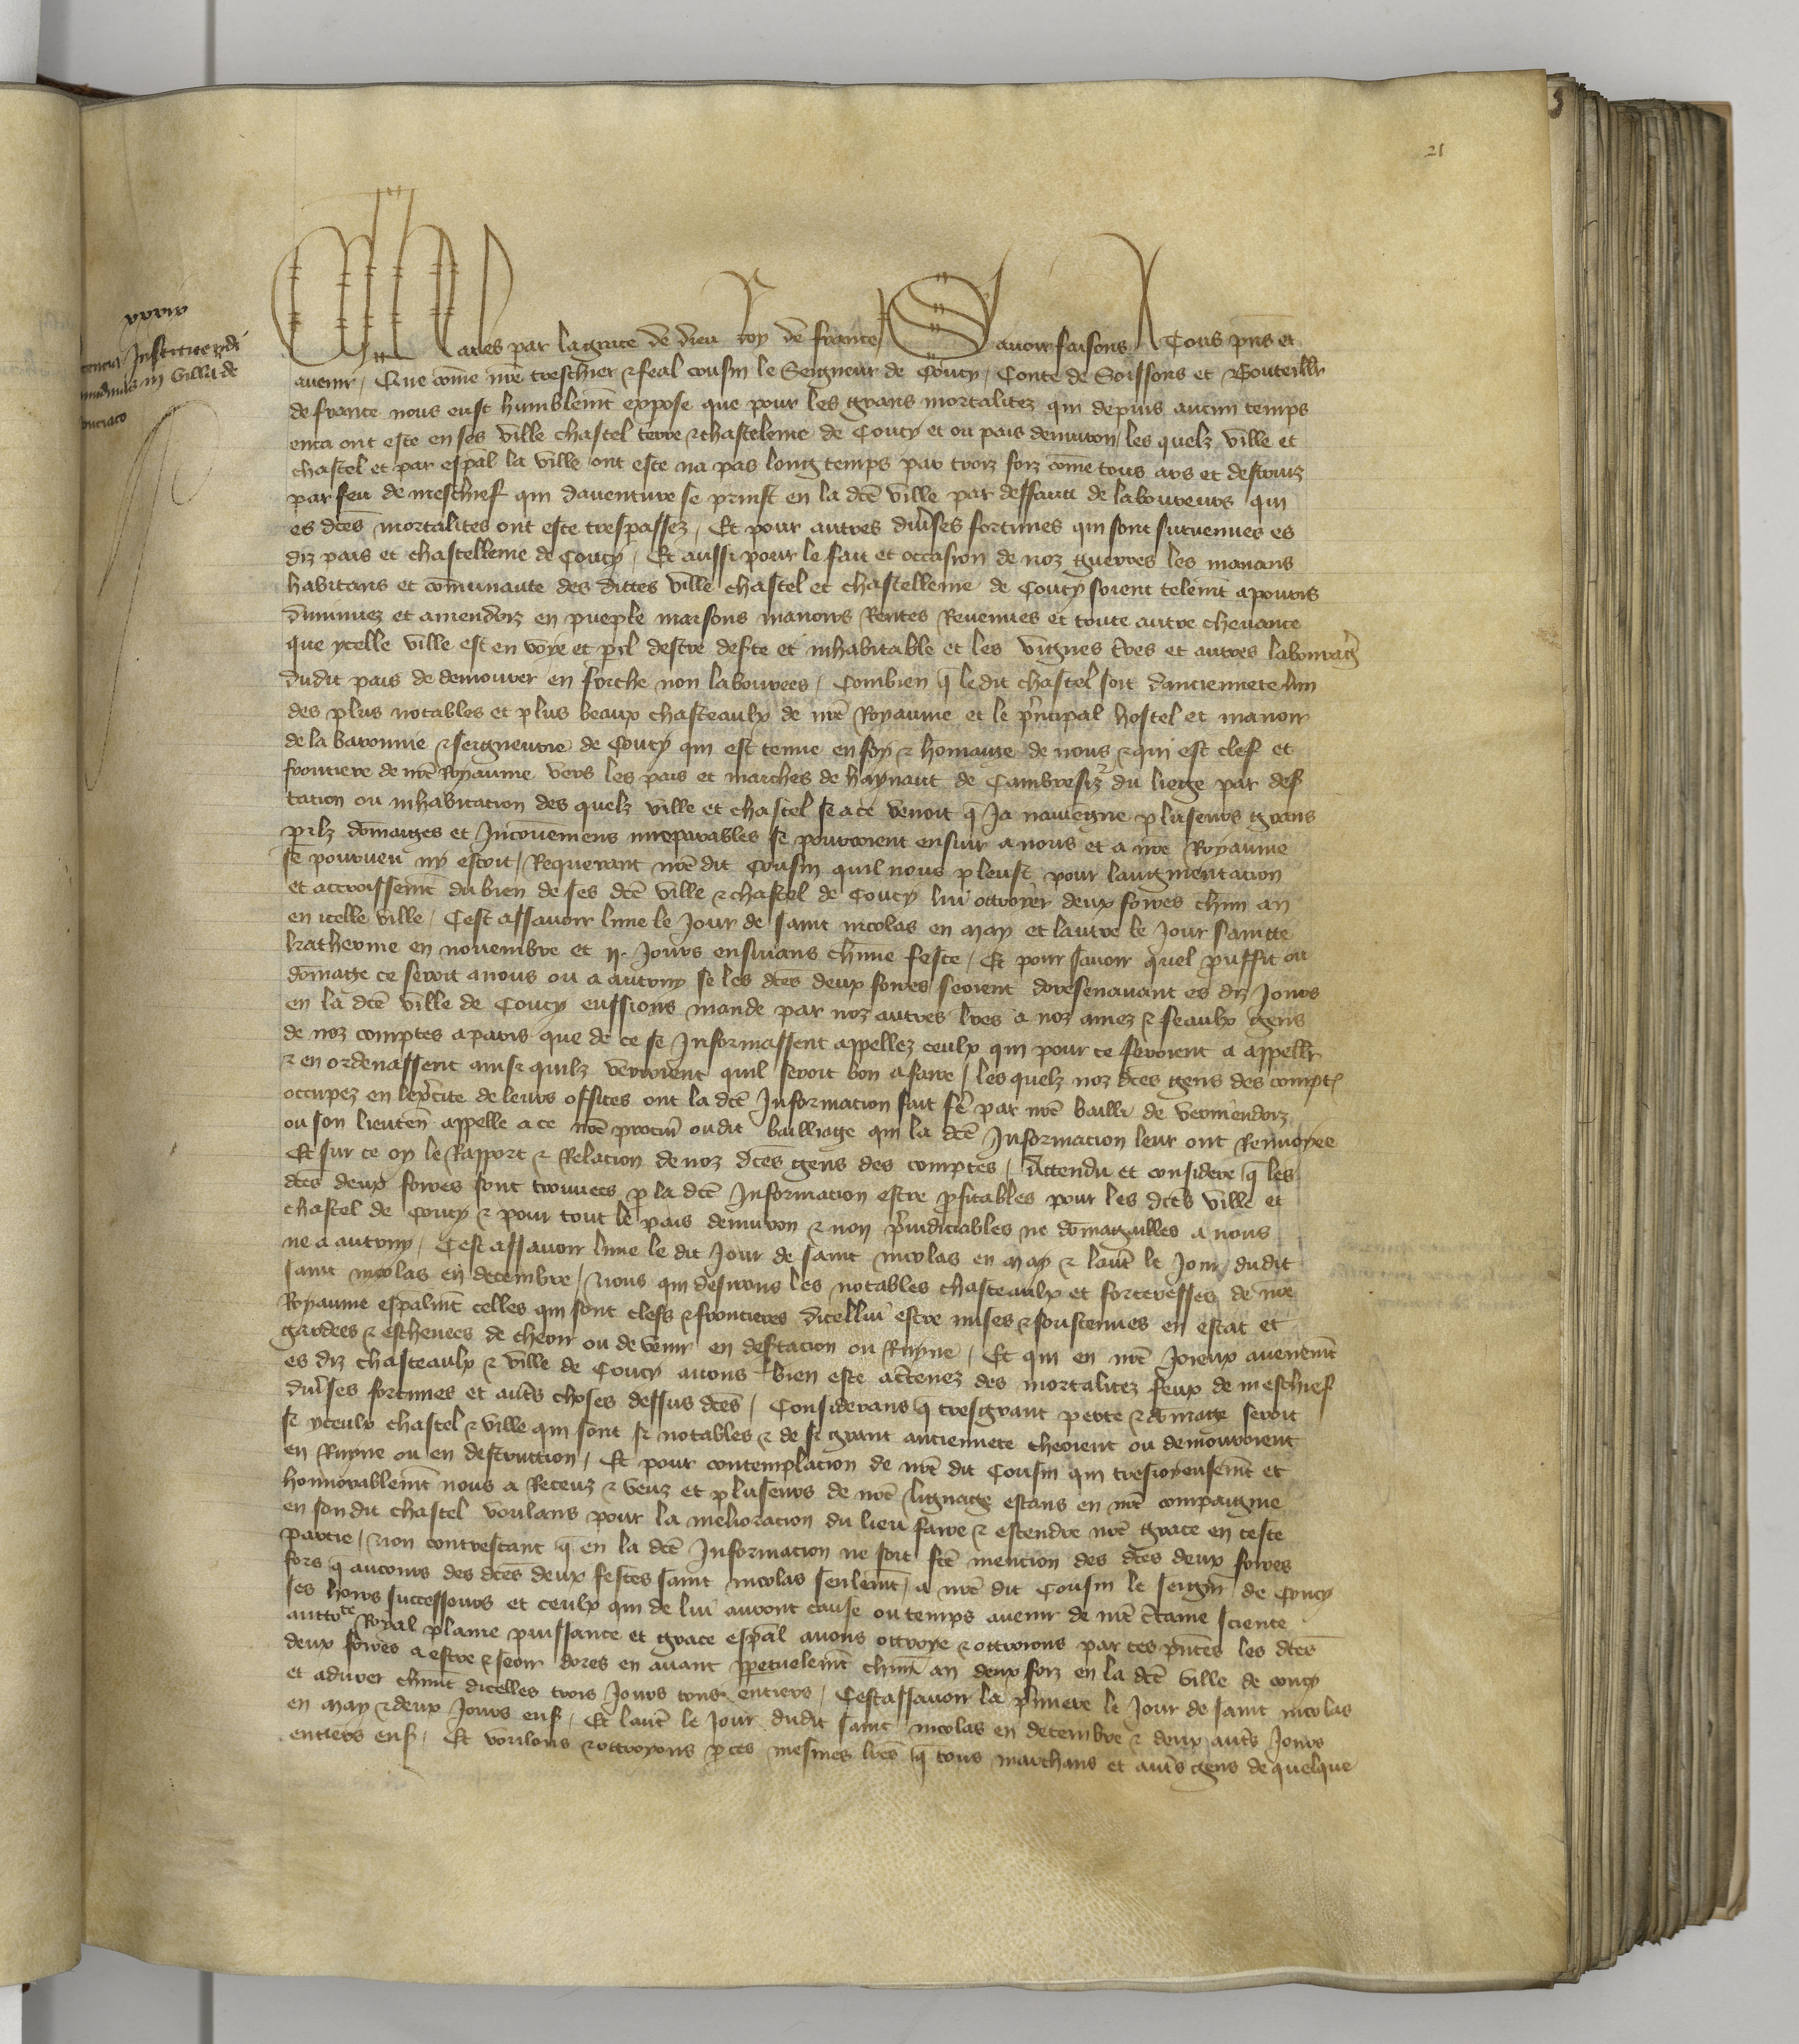 21
xxxiiii
Instituendi
nundinas in villa de
Couciaco
Charles par la grace de dieu Roy de France Savoir faisons A Tous p̄ns et
avenir, Que cōme nr̄e treschier & feal cousin le Seigneur de Coucy, Conte de Soissons et Bouteillr
de france nous eust humblem̄t expose que pour les grans mortalitez qui depuis aucun temps
enca ont este en ses ville chastel terre & chastelenie de Coucy et ou pais denviron les quelz ville et
chastel et par esp̄al la ville ont este na pas long temps par troiz foiz cōme tous ars et destruiz
par feu de meschief qui daventure se prinst en la dc̄e ville par deffaut de laboureurs qui
es dc̄es mortalites ont este trespassez, Et pour autres div̄ses fortunes qui sont survenues es
diz pais et chastellenie de Coucy, Et aussi pour le fait et occasion de noz guerres les manans
habitans et cōmunaute des dittes ville chastel et chastellenie de Coucy soient telem̄t apouris
diminuez et amendriz en pueple maisons manoirs Rentes Revenues et toute autre chevance
que ycelle ville est en voye et p̄il destre des̄te et inhabitable et les vignes t̄res et autres labouraḡ
dudit pais de demourer en friche non labourees, Combien q̄ ledit chastel soit danciennete lun
des plus notables et plus beaux chasteaulx de nr̄e Royaume et le p̄ncipal hostel et manoir
de la baronnie & seigneurie de Coucy qui est tenue en foy & homaige de nous & qui est clef et
frontiere de nr̄e Royaume vers les pais et marches de haynaut de Cambresiz & du liege par des̄
tacion ou inhabitacion des quelz ville et chastel se a ce venoit q̄ Ja navieigne pluseurs grans
p̄ilz dōmaiges et Inconveniens irreparables se pourroient ensuir a nous et a nr̄e Royaume
se pourveu ny estoit, Requerant nr̄e dit Cousin quil nous pleust pour laugmentacion
et accroissem̄t du bien de ses dc̄e ville & chastel de Coucy lui ottroyer deux foires chūn an
en icelle ville, Cest assavoir lune le Jour de saint nicolas en may et lautre le Jour sainte
katherine en novembre et ij. Jours ensuivans chūne feste, Et pour savoir quel prouffit ou
dōmage ce seroit a nous ou a autruy se les dc̄es deux foires seoient doresenavant es diz Jours
en la dc̄e ville de Coucy eussions mande par noz autres lr̄es a noz amez & feaulx gens
de noz comptes a paris que de ce se Informassent appellez ceulx qui pour ce seroient a appellr
& en ordenassent ainsi quilz verroient quil seroit bon a faire, les quelz noz dc̄es gens des compt̄
occupez en lex̄cite de leurs offices ont la dc̄e Information fait fē par nr̄e bailli de vermendoiz
ou son lieuten̄ appelle a ce nr̄e procur̄ oudit bailliage qui la dc̄e Information leur ont Renvoyee
Et sur ce oy le Rapport & Relacion de noz dc̄es gens des comptes, Attendu et considere q̄ les
dc̄es deux foires sont trouvees p̄ la dc̄e Information estre p̄fitables pour les dc̄es ville et
chastel de Coucy & pour tout le pais denviron & non p̄iudiciables ne dōmagables a nous
ne a autruy, Cest assavoir lune le dit Jour de saint nicolas en may & laut̄e le Jour dudit
saint nicolas en decembre, Nous qui desirons les notables chasteaulx et forteresses de nr̄e
Royaume esp̄alm̄t celles qui sont clefs & frontieres dicellui estre mises & soustenues en estat et
gardees & eschevees de cheoir ou de venir en des̄tacion ou Ruyne, Et qui en nr̄e Joieux avenem̄t
es diz chasteaulx & ville de Coucy avons bien este acertenez des mortalitez feux de meschief
div̄ses fortunes et aut̄s choses dessus dc̄es, Considerans q̄ tresgrant perte & dōmage seroit
se yceulx chastel & ville qui sont si notables & de si grant anciennete cheoient ou demouroient
en Ruyne ou en destruction, Et pour contemplacion de nr̄e dit Cousin qui tresioyeusem̄t et
honnorablem̄t nous a Receuz & veuz et pluseurs de nr̄e lignage estans en nr̄e compaignie
en son dit chastel voulans pour la melioracion du lieu faire & estendre nr̄e grace en ceste
partie, Non contrestant q̄ en la dc̄e Information ne soit fc̄e mencion des dc̄es deux foires
fors q̄ aucoins des dc̄es deux festes saint nicolas seulem̄t, a nr̄e dit Cousin le seign̄ de Coucy
ses hoirs successeurs et ceulx qui de lui auront cause ou temps avenir de nr̄e c̄taine science
auctote Royal plaine puissance et grace esp̄al avons ottroye & ottroions par ces p̄ntes les dc̄es
deux foires a estre & seoir dores en avant p̄petuelem̄t chūn an deux foiz en la dc̄e ville de coucy
et a durer chūne dicelles trois Jours tous entiers, Cestassavoir la p̄miere le Jour de saint nicolas
en may & deux Jours ens̄, Et laut̄e le Jour dudit saint nicolas en decembre & deux aut̄s Jours
entiers ens̄, Et voulons & ottroyons p̄ ces mesmes lr̄es q̄ tous marchans et aut̄s gens de quelque